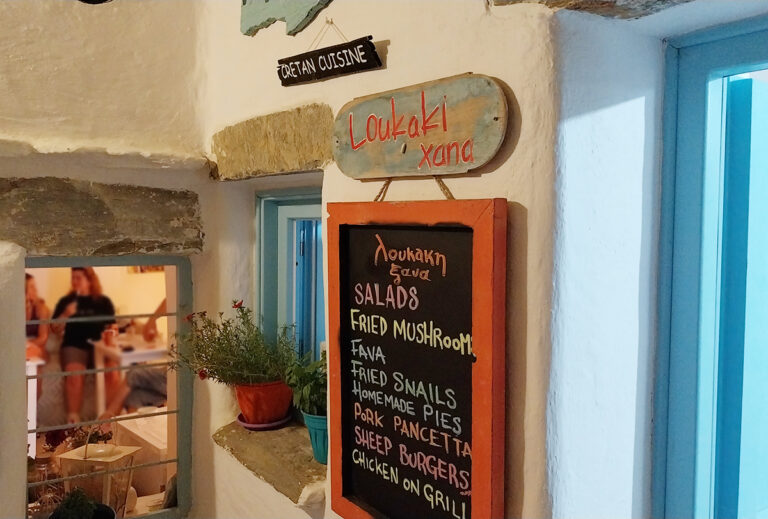 CRETAN CUISINE
Loukaki
xana
λουκακη
ξανα
SALADS
FRIED MUSHROOMS
FAVA
FRIED SNAILS
HOMEMADE PIES
PORK PANCETTA
SHEEP BURGERS
CHICKEN ON GRILL